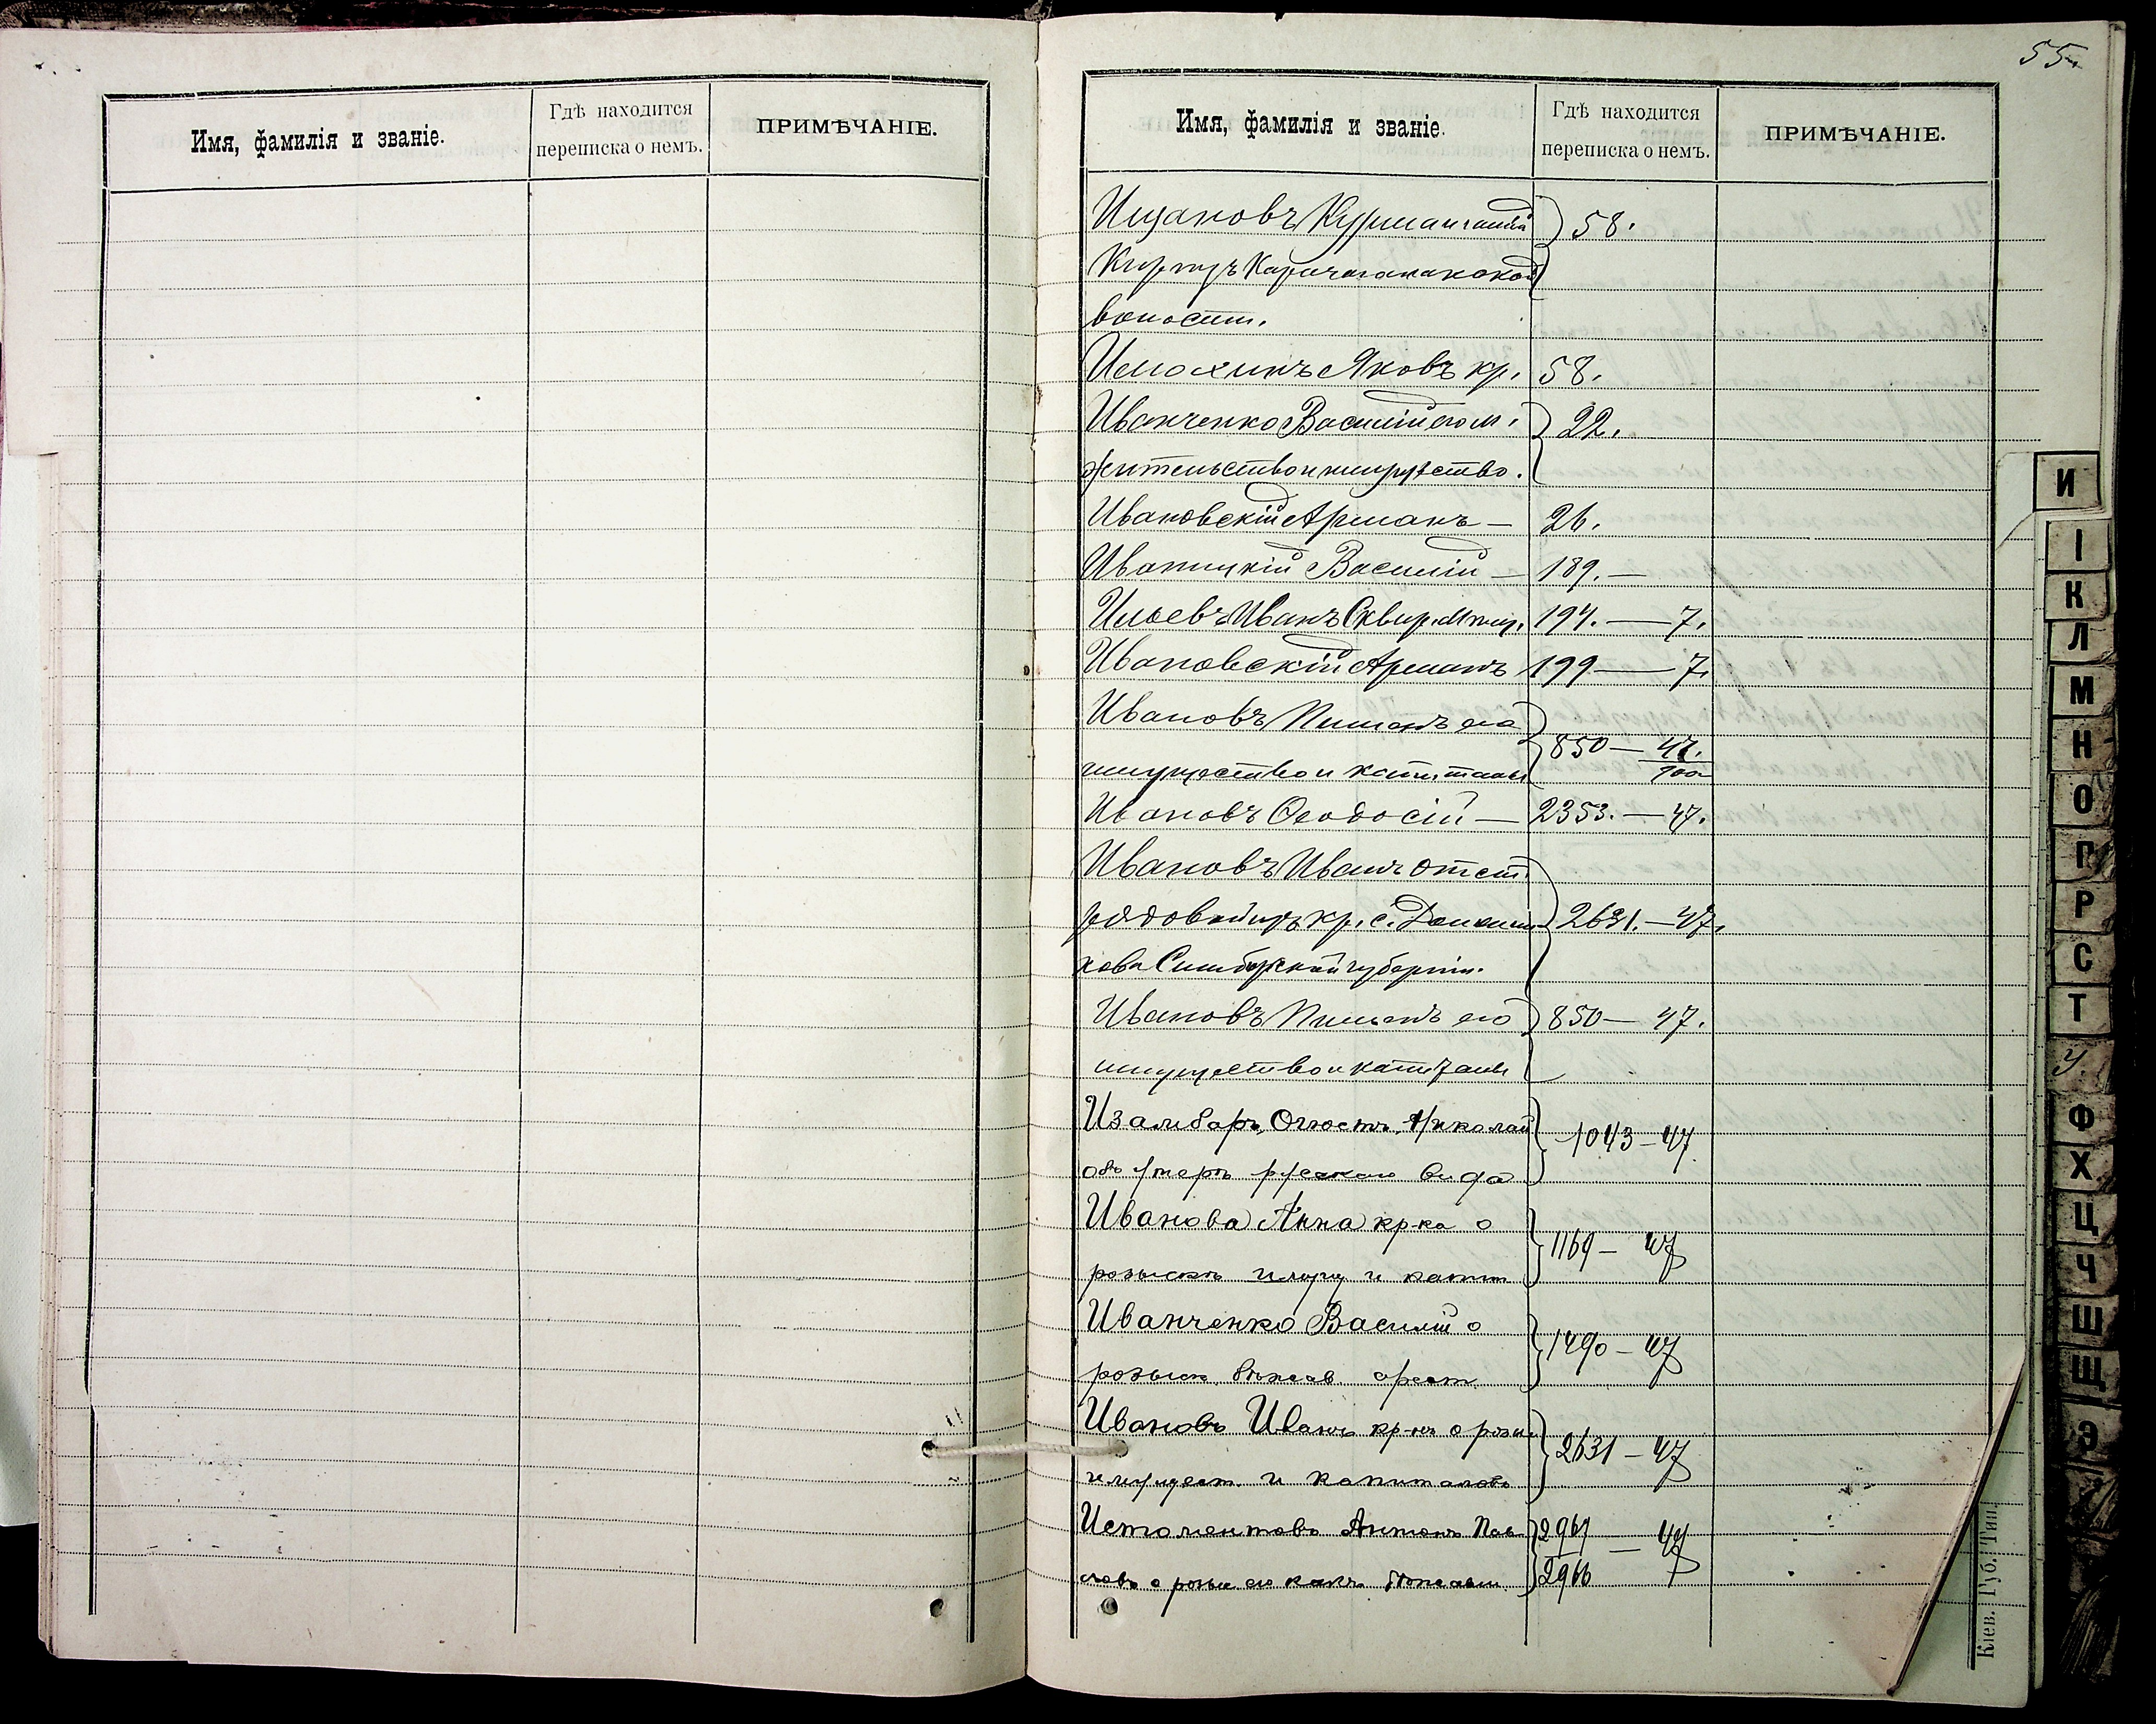 55
Имя, фамилія и званіе.
Гдѣ находится
переписка о немъ.
ПРИМѢЧАНІЕ.
Имя, фамилія и званіе.
Гдѣ находится
переписка о немъ.
ПРИМѢЧАНІЕ.
Ищановъ 58.
Киргизъ
волости.
Яковъ кр. 58.
Иванченко Василій его м.
жительство и имущество. 22.
Ивановскій Арманъ — 26.
Иваницкій Василій — 189. —
Ильевъ Иванъ Сквир. Мѣщ. 194. — 7.
Ивановскій Арманъ 199 — 7.
Ивановъ Пименъ его
имущество и капиталы 850 — 47.
900
Ивановъ Ѳеодосій — 2353. — 47.
Ивановъ Иванъ отст.
рядовой изъ кр. с. 2631. — 47.
Симбирской губерніи.
Ивановъ Пименъ его 850 — 47.
имущество и капиталы
Изамбаръ, Огюстъ, Николай 1043 — 47
объ утерѣ русскаго вида
Иванова Анна кр-ка о
розыскѣ имущ и капит 1169 — 47
Иванченко Василій о
розыск. бѣжав арест. 1490 — 47
Ивановъ Иванъ кр-нъ о розы
имущест. и капиталовъ 2631 — 47
Истоментовъ Антонъ Пав 2961 — 47
ловъ о розыс его какъ бѣжавш. 2966
Кіев. Губ. Тип.
И
І
К
Л
М
Н
О
П
Р
С
Т
У.
Ф
Х
Ц
Ч
Ш
Щ
Э